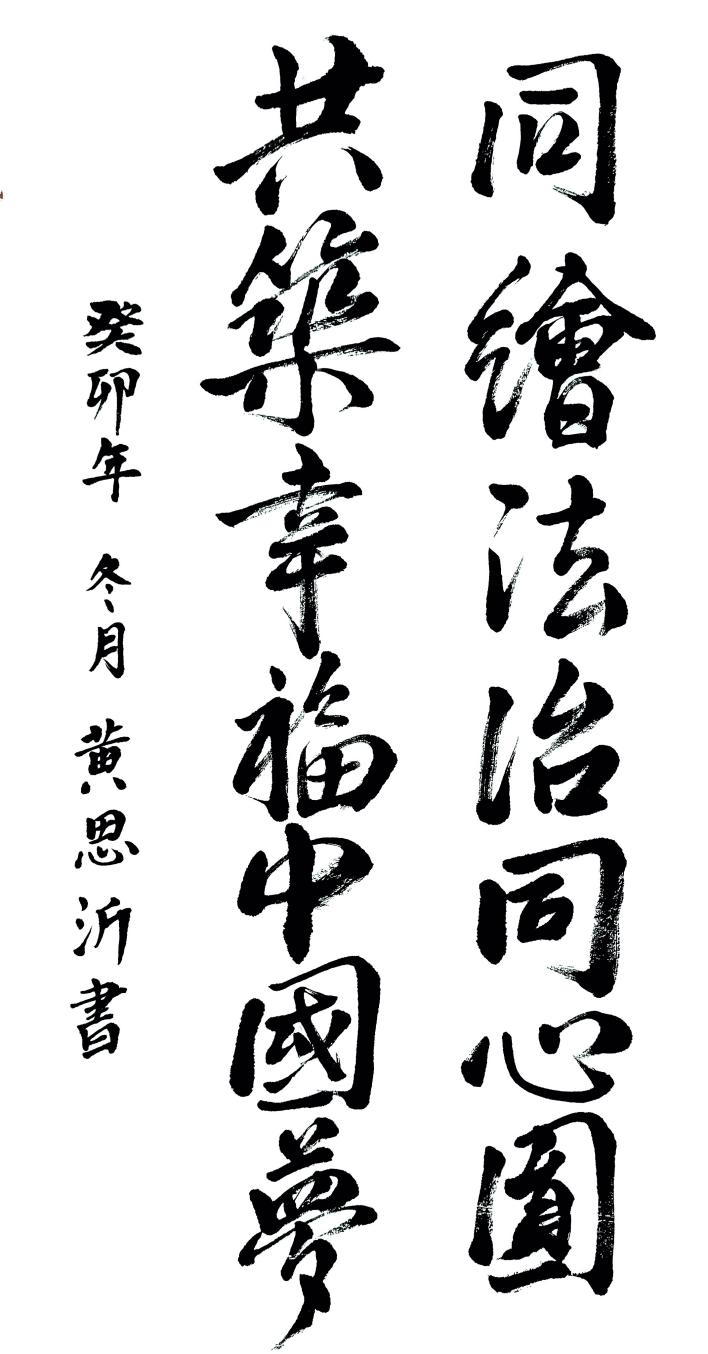 同繪法治同心圓
共築幸福中國夢
癸卯年 冬月 黄思沂書